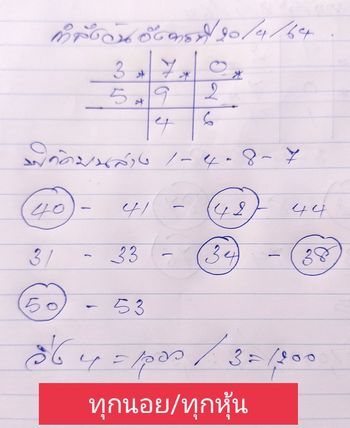 กำลังวันอังคารที่ 20/4/64
3* 7* 0*
5* 9 2
4 6
บนล่าง 1-4-8-7
40 - 41 - 42 - 44
31 - 33 - 34 - 38
50 - 53
วิ่ง 4 = 1,000 / 3 = 1,200
ทุกนอย/ทุกหุ้น